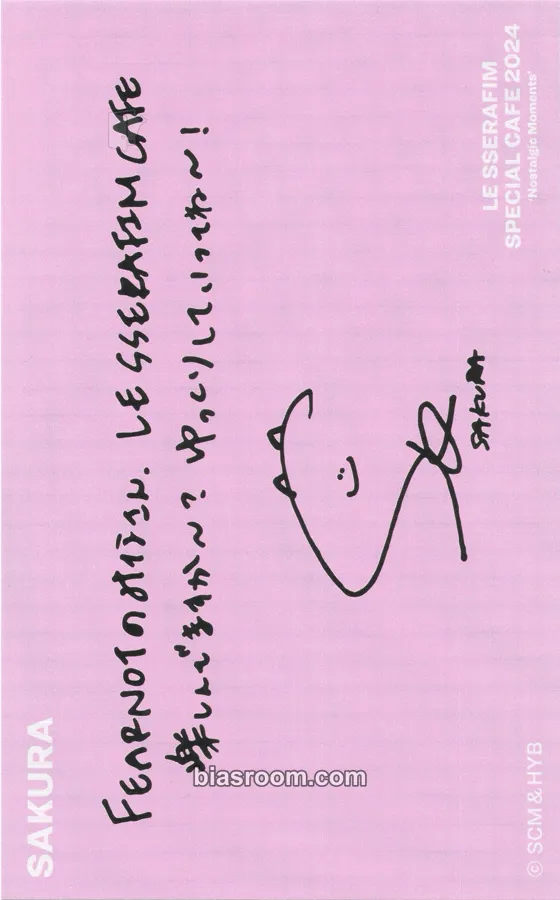 LE SSERAFIM
SPECIAL CAFE 2024
'Nostalgic Moments'
FEARNOTのみなさん、LE SSERAFIM CAFE
楽しんでますか〜？ゆっくりしていってね〜！
SAKURA
SAKURA
© SCM & HYB
biasroom.com